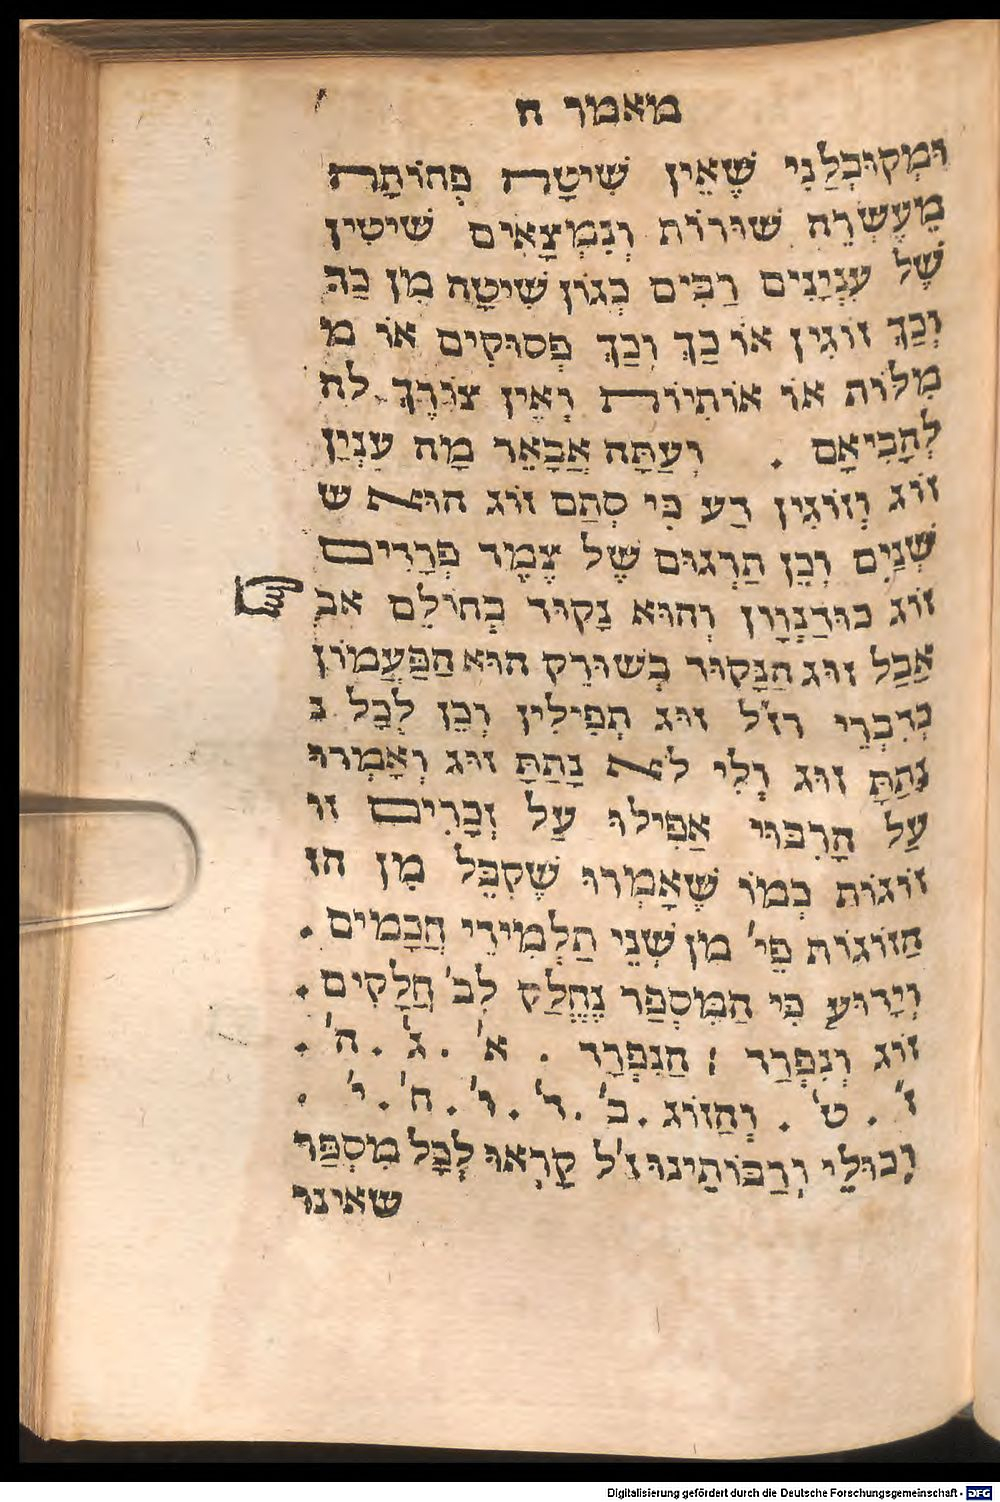 מאמר ח
וּמְקוּבְּלַנִי שֶׁאֵין שִׁיטָה פְּחוֹתָה
מֵעֶשְׂרֵה שׁוּרוֹת וְנִמְצָאִים שִׁיטִין
שֶׁל עִנְיָנִים רַבִּים כְּגוֹן שִׁיטָה מִן כַּךְ
וְכַךְ זוֹגִין אוֹ כַּךְ וְכַךְ פְּסוּקִים אוֹ מ
מִלּוֹת אוֹ אוֹתִיּוֹת וְאֵין צוֹרֶךְ לה
לַהֲבִיאָם . וְעַתָּה אֲבָאֵר מָה עִנְיַן
זוֹג וְזוֹגִין דַּע כִּי סְתַם זוֹג הוּא ש
שְׁנַיִם וְכֵן תַּרְגּוּם שֶׁל צֶמֶד פְּרָדִים
זוֹג כּוּדַנְוָון וְהוּא נָקוּד בְּחוֹלֵם אב
אֲבָל זוּג הַנָּקוּד בְּשׁוּרֶק הוּא הַפַּעֲמוֹן
כְּדִבְרֵי רז״ל זוּג תְּפִילִין וְכֵן לְכָל נ
נָתַתָּ זוּג וְלִי לֹא נָתַתָּ זוּג וְאָמְרוּ
עַל הָרִבּוּי אַפִילוּ עַל זְכָרִים זו
זוֹגוֹת כְּמוֹ שֶׁאָמְרוּ שֶׁקִּבֵּל מִן הז
הַזּוֹגוֹת פֵּי׳ מִן שְׁנֵי תַלְמִידֵי חֲכָמִים .
וְיָדוּעַ כִּי הַמִּסְפַּר נֶחֱלַק לב׳ חֲלָקִים .
זוֹג וְנִפְרַד : הַנִפְרָד . א׳ . ג׳ . ה׳ .
ז׳ . ט׳ . וְהַזּוֹג . ב׳ . ד׳ . ו׳ . ח׳ . י׳ .
וְכוּלֵי וְרַבּוֹתֵינוּ ז״ל קָרְאוּ לְכָל מִסְפַּר
שאינו
Digitalisierung gefördert durch die Deutsche Forschungsgemeinschaft - DFG